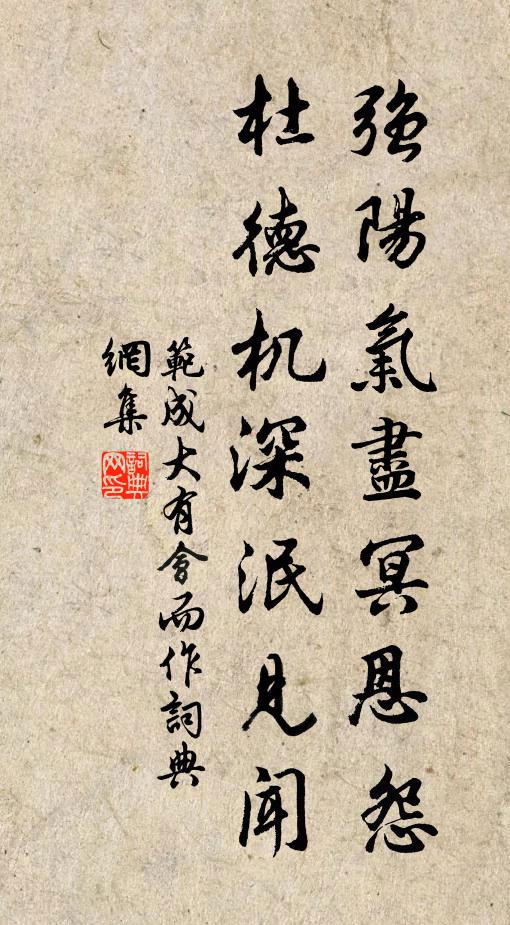 強陽氣盡冥恩怨
杜德机深泯見聞
範成大有會而作詞典
網集
詞典
网印